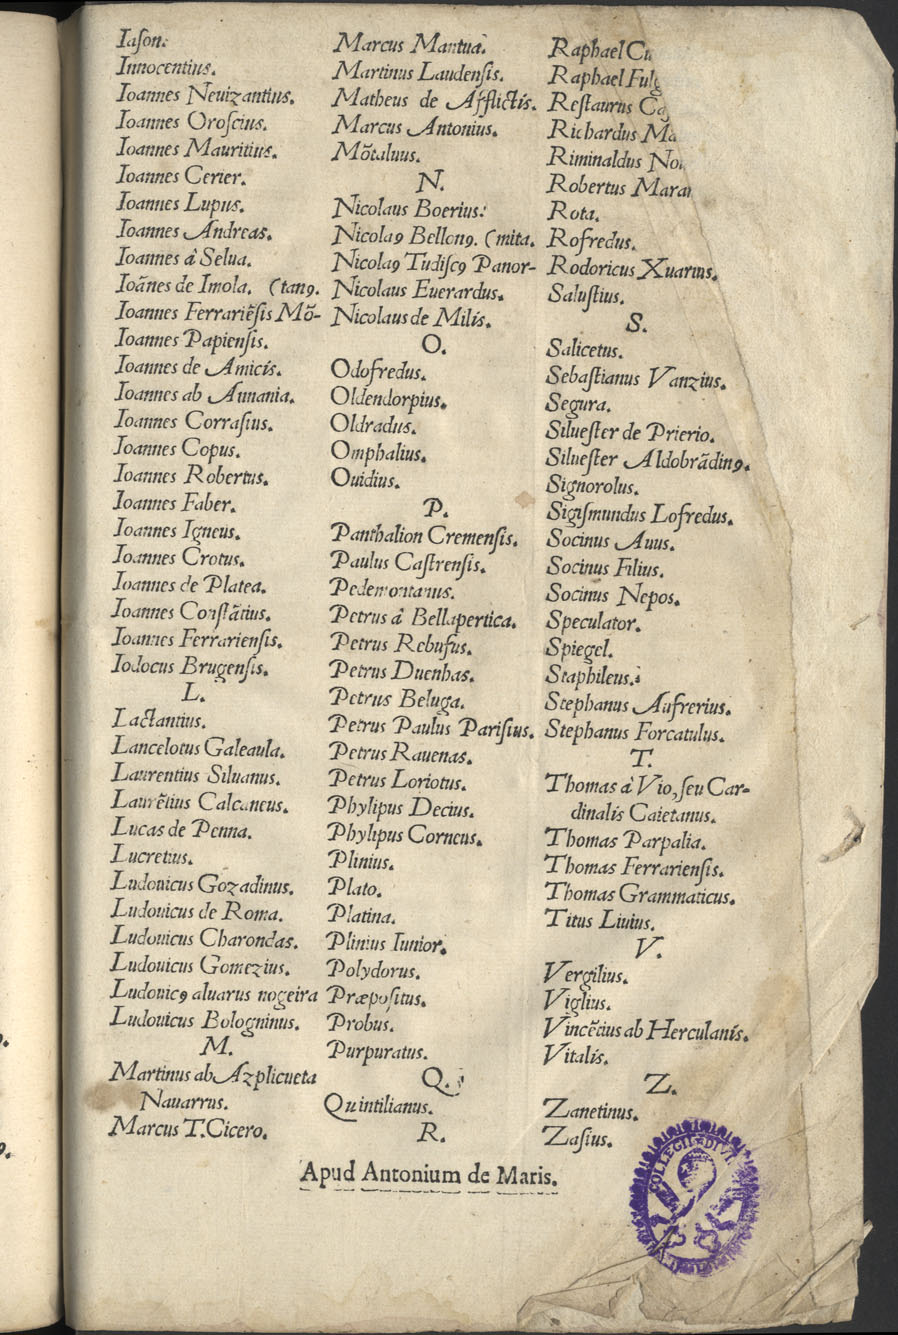 Iason.
Innocentius.
Ioannes Neuizantius.
Ioannes Oroscius.
Ioannes Mauritius.
Ioannes Cerier.
Ioannes Lupus.
Ioannes Andreas.
Ioannes à Selua.
Ioãnes de Imola. (tanꝰ.
Ioannes Ferrariẽsis Mõ-
Ioannes Papiensis.
Ioannes de Amicis.
Ioannes ab Annania.
Ioannes Corrasius.
Ioannes Copus.
Ioannes Robertus.
Ioannes Faber.
Ioannes Igneus.
Ioannes Crotus.
Ioannes de Platea.
Ioannes Constãtius.
Ioannes Ferrariensis.
Iodocus Brugensis.
L.
Lactantius.
Lancelotus Galeaula.
Laurentius Siluanus.
Laurẽtius Calcaneus.
Lucas de Penna.
Lucretius.
Ludouicus Gozadinus.
Ludouicus de Roma.
Ludouicus Charondas.
Ludouicus Gomezius.
Ludouicꝰ aluarus nogeira
Ludouicus Bologninus.
M.
Martinus ab Azplicueta
Nauarrus.
Marcus T.Cicero.
Marcus Mantua.
Martinus Laudensis.
Matheus de Afflictis.
Marcus Antonius.
Mõtaluus.
N.
Nicolaus Boerius.
Nicolaꝰ Bellonꝰ. (mita.
Nicolaꝰ Tudiscꝰ Panor-
Nicolaus Euerardus.
Nicolaus de Milis.
O.
Odofredus.
Oldendorpius.
Oldradus.
Omphalius.
Ouidius.
P.
Panthalion Cremensis.
Paulus Castrensis.
Pedemontanus.
Petrus à Bellapertica.
Petrus Rebufus.
Petrus Duenhas.
Petrus Beluga.
Petrus Paulus Parisius.
Petrus Rauenas.
Petrus Loriotus.
Phylipus Decius.
Phylipus Corneus.
Plinius.
Plato.
Platina.
Plinius Iunior.
Polydorus.
Præpositus.
Probus.
Purpuratus.
Q.
Quintilianus.
R.
Raphael
Raphael
Restaurus
Richardus
Riminaldus
Robertus
Rota.
Rofredus.
Rodoricus Xuarius.
Salustius.
S.
Salicetus.
Sebastianus Vanzius.
Segura.
Siluester de Prierio.
Siluester Aldobrãdinꝰ.
Signorolus.
Sigismundus Lofredus.
Socinus Auus.
Socinus Filius.
Socinus Nepos.
Speculator.
Spiegel.
Staphileus.
Stephanus Aufrerius.
Stephanus Forcatulus.
T.
Thomas à Vio, seu Car-
dinalis Caietanus.
Thomas Parpalia.
Thomas Ferrariensis.
Thomas Grammaticus.
Titus Liuius.
V.
Vergilius.
Viglius.
Vincẽtius ab Herculanis.
Vitalis.
Z.
Zanetinus.
Zasius.
Apud Antonium de Maris.
COLLEGII